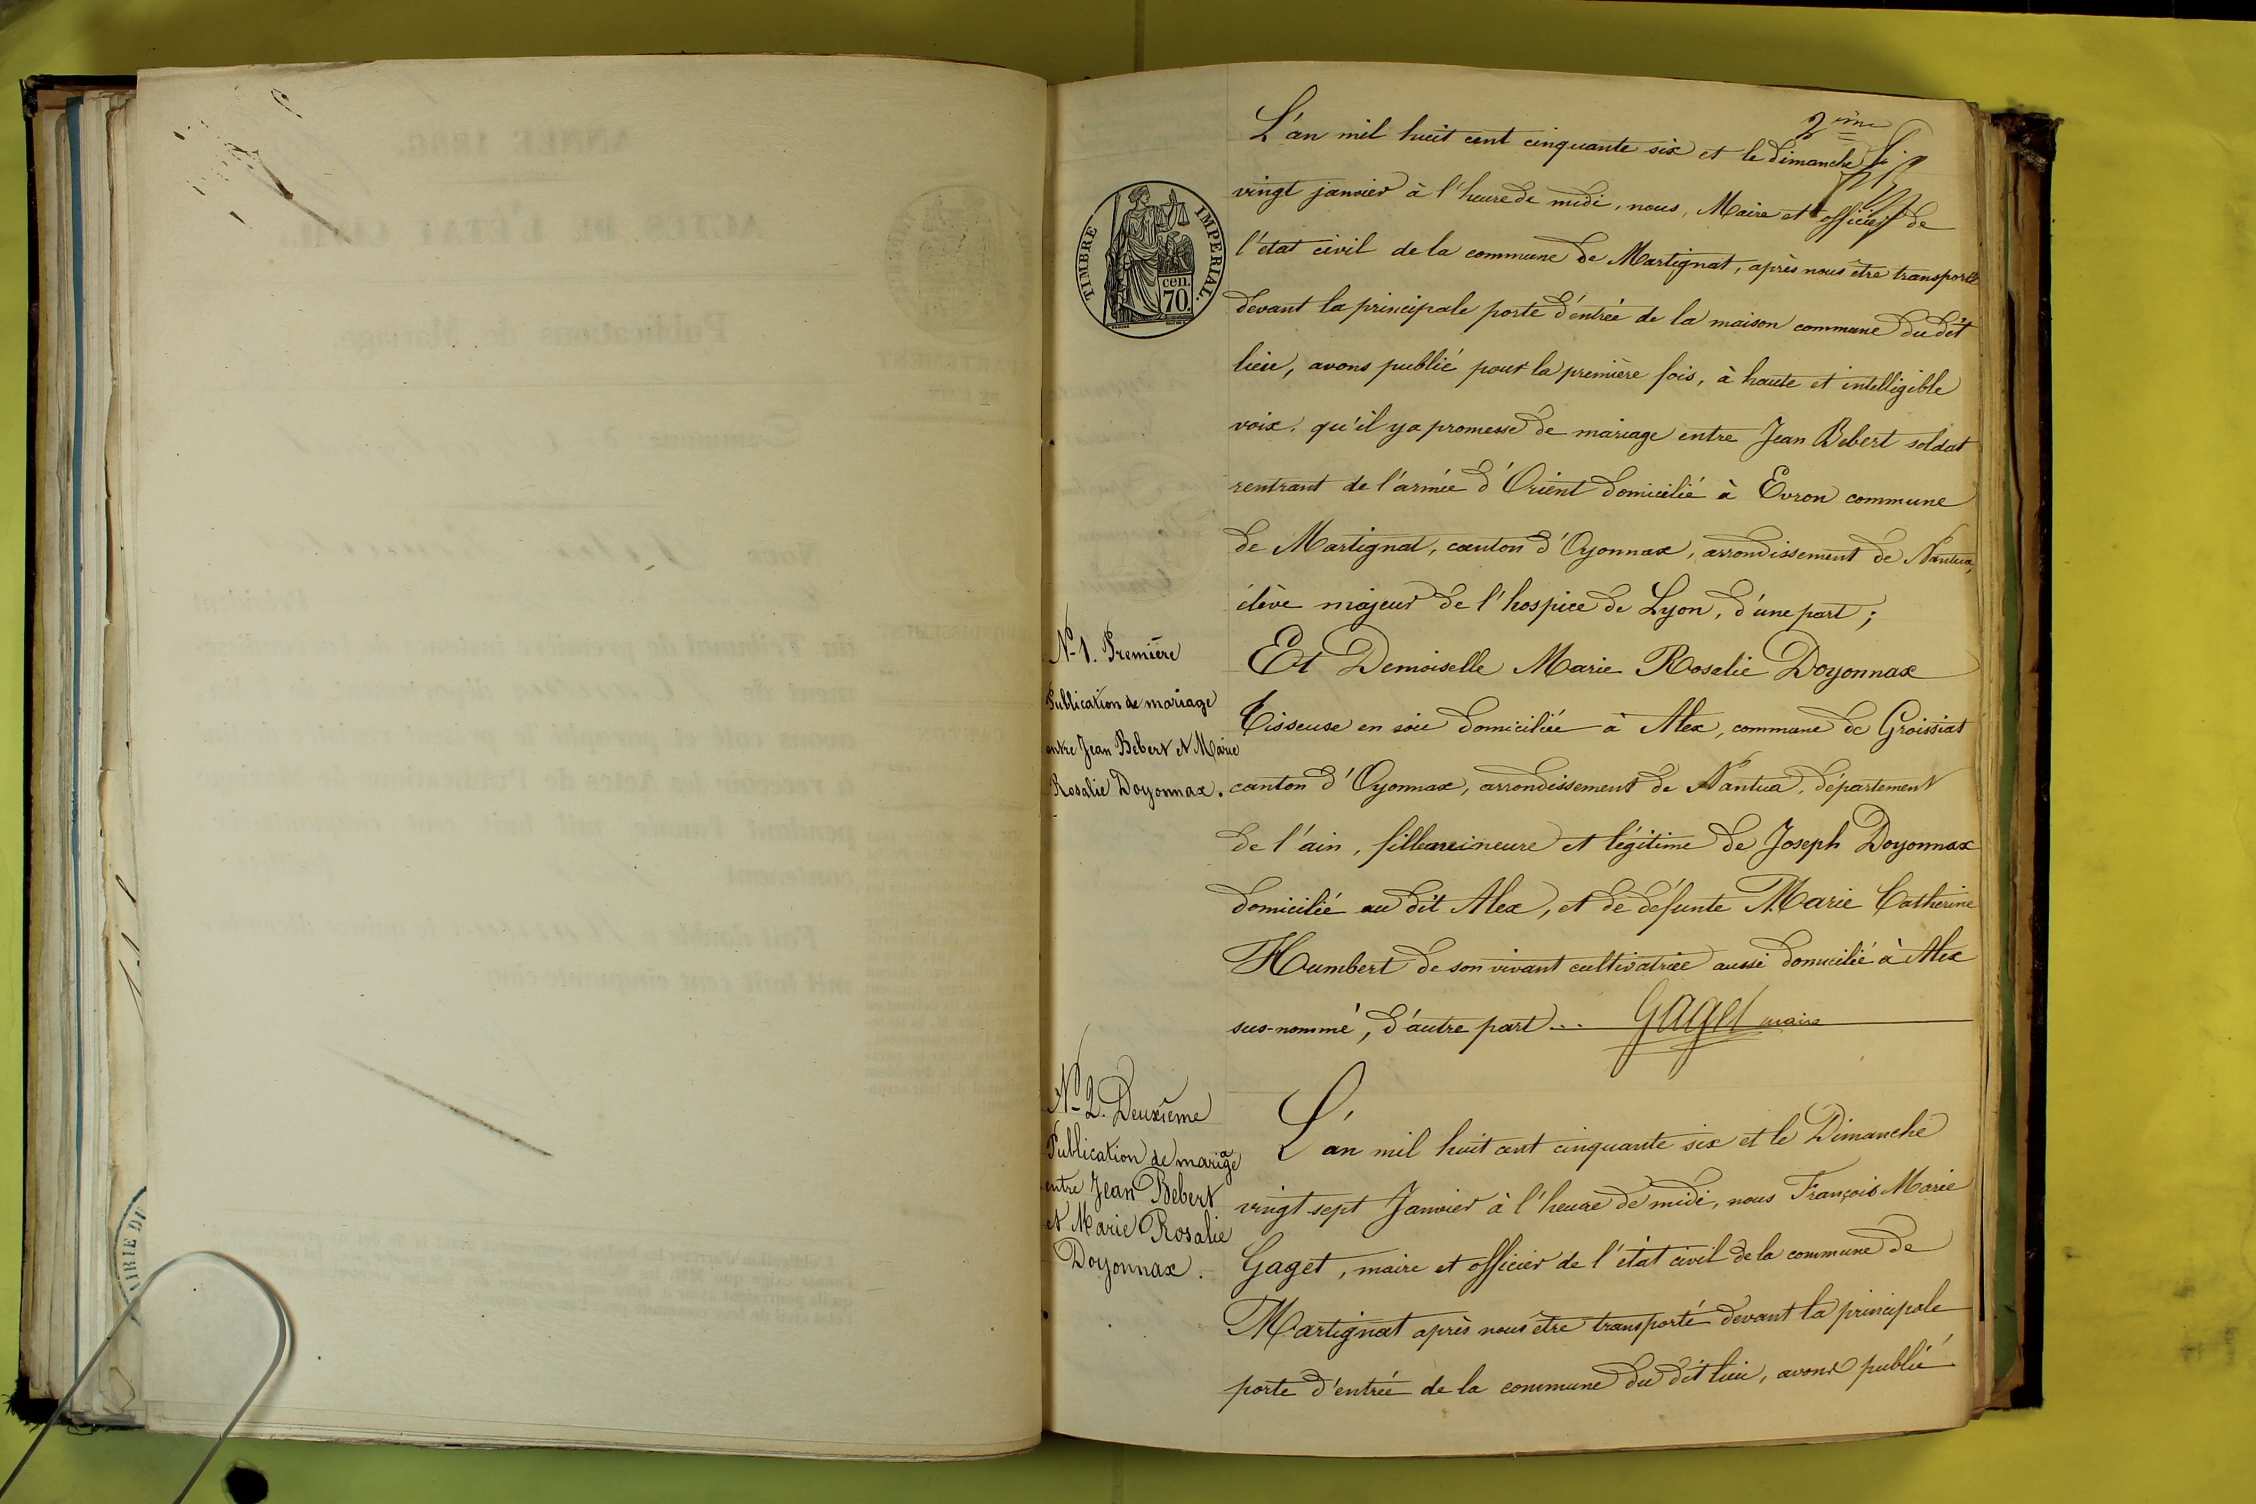 2ème
L'an mil huit cent cinquante six et le dimanche
vingt janvier à l'heure de midi, nous, Maire et officier de
l'état civil de la commune de Martignat, après nous être transporté
devant la principale porte d'entrée de la maison commune du dit
lieu, avons publié pour la première fois, à haute et intelligible
voix, qu'il y a promesse de mariage entre Jean Bebert soldat
rentrant de l'armée d'Orient domicilié à Evron commune
de Martignat, canton d'Oyonnax, arrondissement de Nantua,
élève majeur de l'hospice de Lyon, d'une part ;
Et Demoiselle Marie Rosalie Doyonnax
Tisseuse en soie domiciliée à Alex, commune de Groissiat
canton d'Oyonnax, arrondissement de Nantua, département
de l'ain, fille mineure et légitime de Joseph Doyonnax
domicilié au dit Alex, et de défunte Marie Catherine
Humbert de son vivant cultivatrice aussi domicilié à Alex
sus-nommé, d'autre part ... Gaget maire
TIMBRE IMPERIAL.
cen.
70.
N° 1. Première
Publication de mariage
entre Jean Bebert et Marie
Rosalie Doyonnax.
N° 2. Deuxième
Publication de mariage
entre Jean Bebert
et Marie Rosalie
Doyonnax.
L'an mil huit cent cinquante six et le Dimanche
vingt sept Janvier à l'heure de midi, nous François Marie
Gaget, maire et officier de l'état civil de la commune de
Martignat après nous être transporté devant la principale
porte d'entrée de la commune du dit lieu, avons publié
AIRIE DE